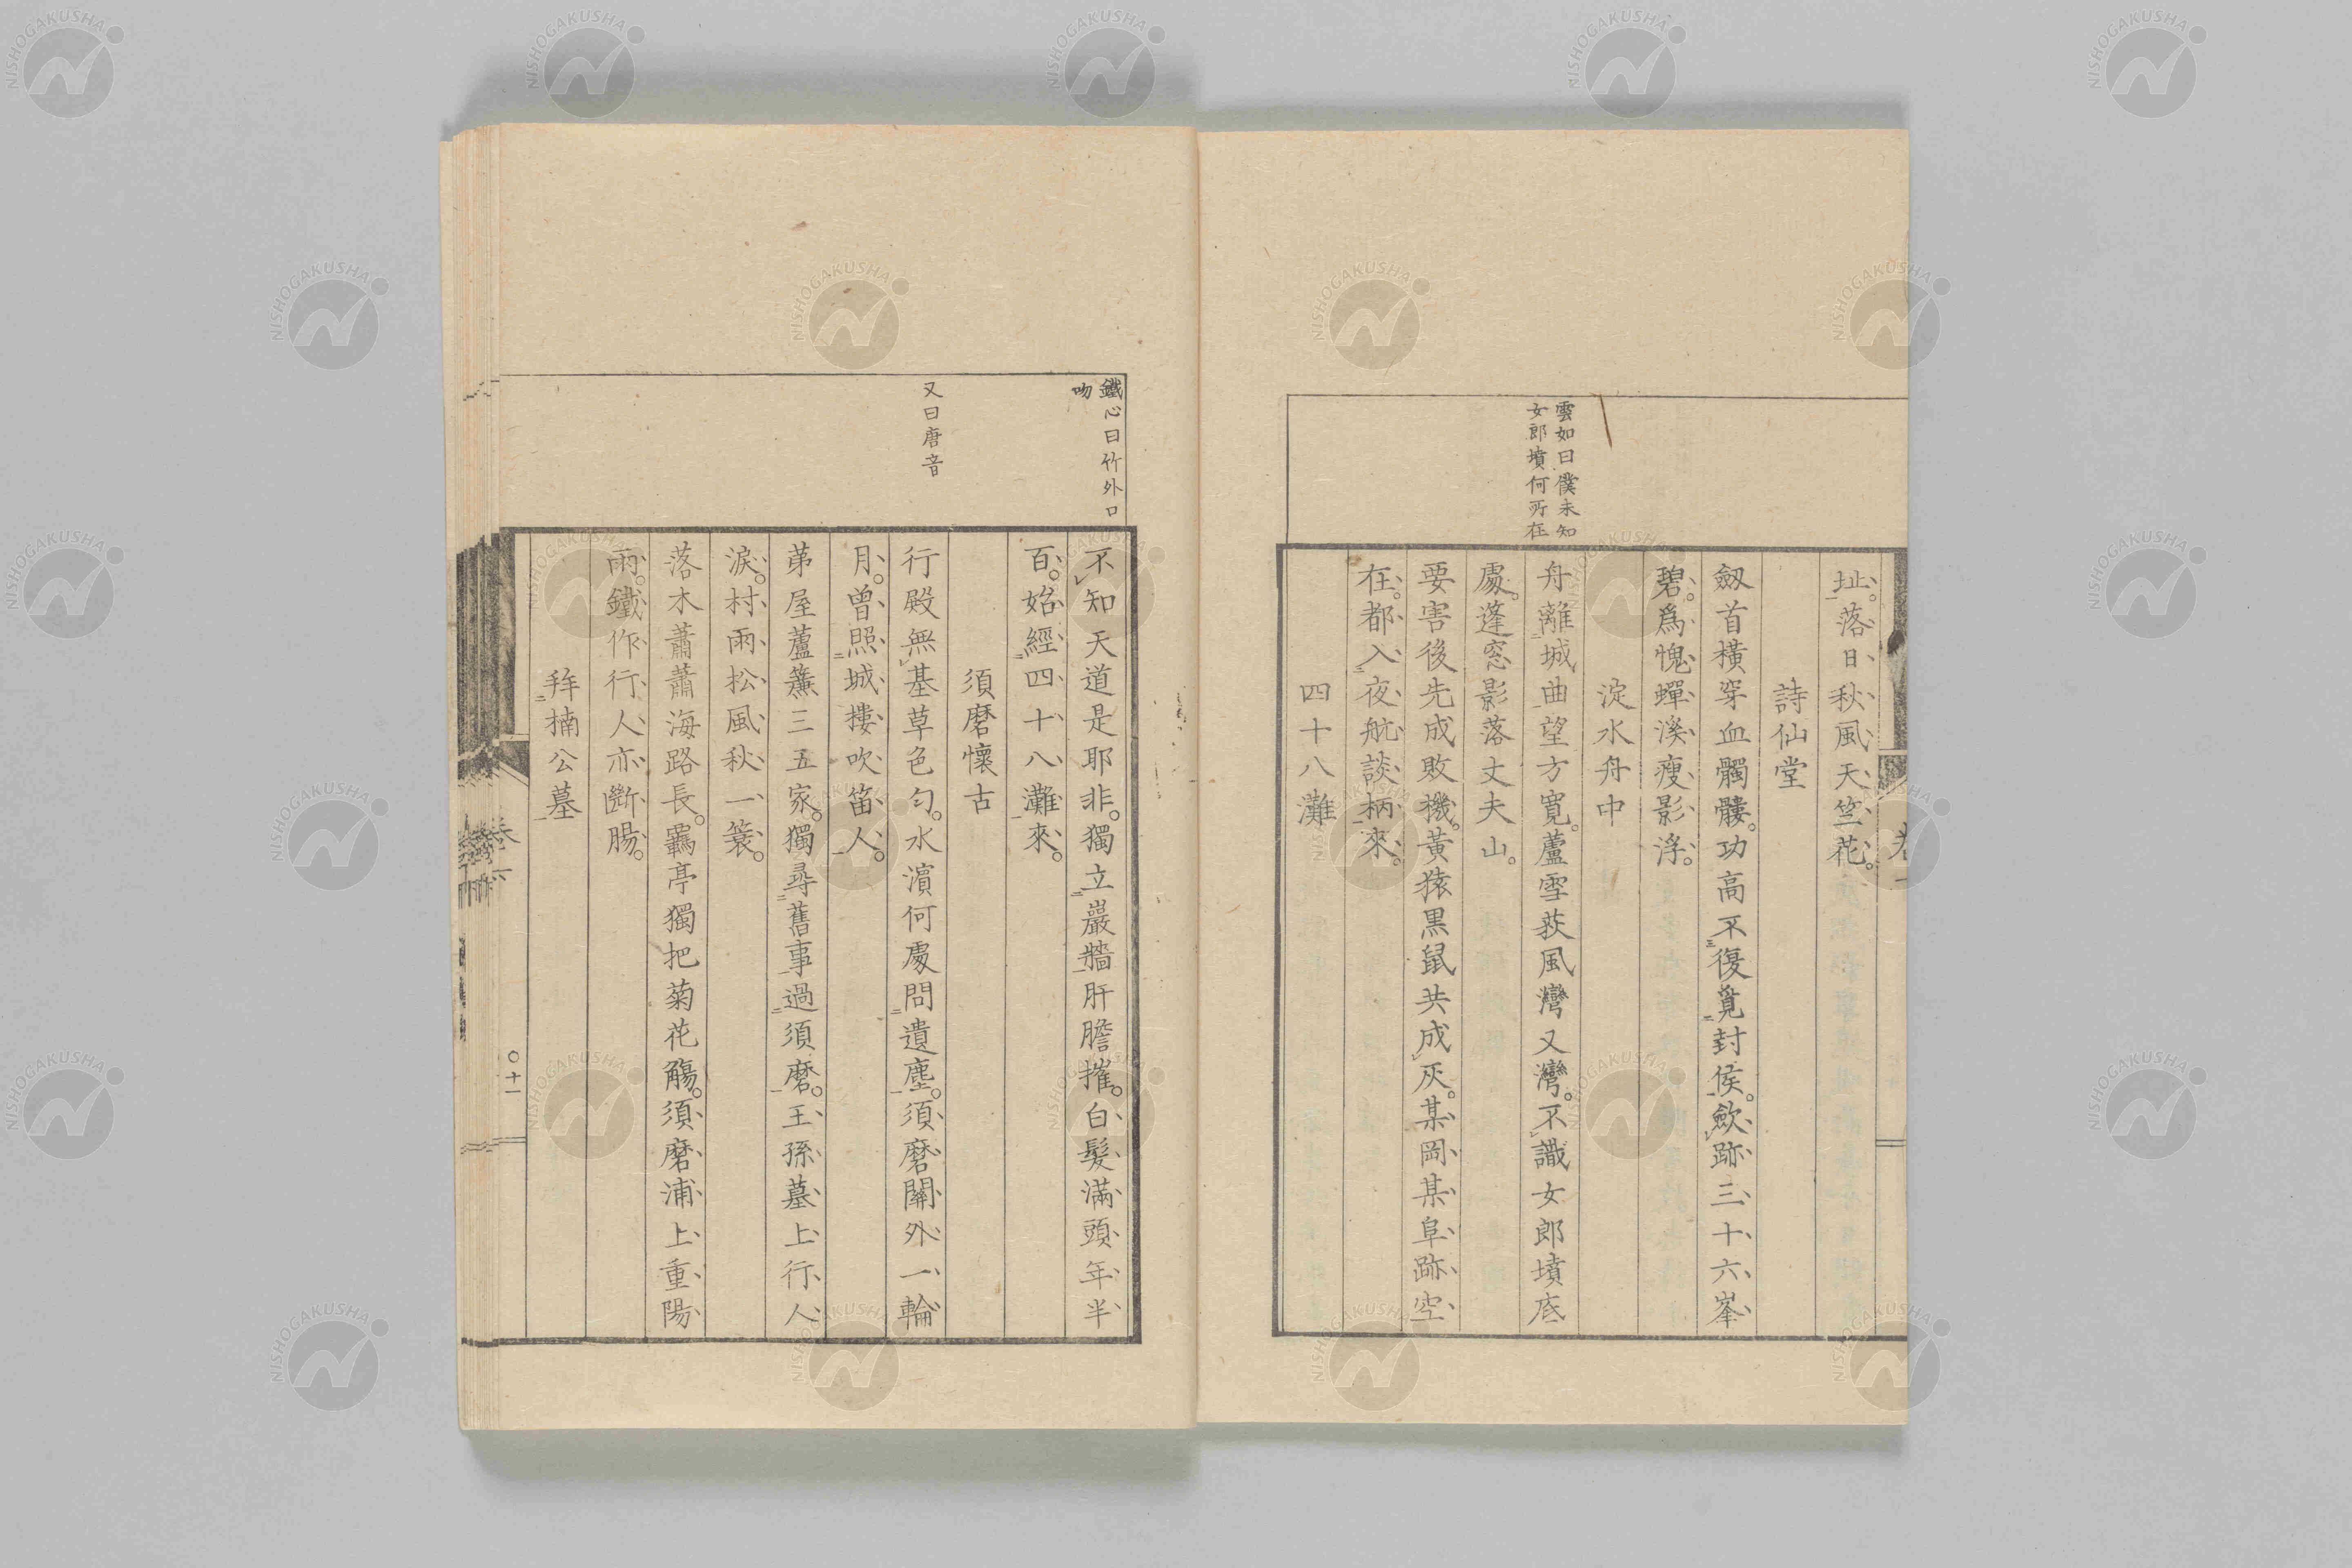 雲如曰僕未知
女郎墳何所在
址。落日秋風天竺花。
詩仙堂
劔首橫穿血髑髏。功高不復覓封侯。歛跡三十六峯
碧。爲愧蟬溪瘦影浮。
淀水舟中
舟離城曲望方寬。蘆雪荻風灣又灣。不識女郎墳底
處。蓬窓影落丈夫山。
要害後先成敗機。黃猿黑鼠共成灰。某岡某阜跡空
在。都入夜航談柄來。
四十八灘
鐵心曰竹外口
吻
又曰唐音
不知天道是耶非。獨立巖牆肝膽摧。白髮滿頭年半
百。始經四十八灘來。
須磨懷古
行殿無基草色勻。水濵何處問遺塵。須磨關外一輪
月。曾照城樓吹笛人。
茅屋蘆簾三五家。獨尋舊事過須磨。王孫墓上行人
淚。村雨松風秋一簑。
落木蕭蕭海路長。羈亭獨把菊花觴。須磨浦上重陽
雨。鐵作行人亦斷腸。
拜楠公墓
十一
NISHOGAKUSHA